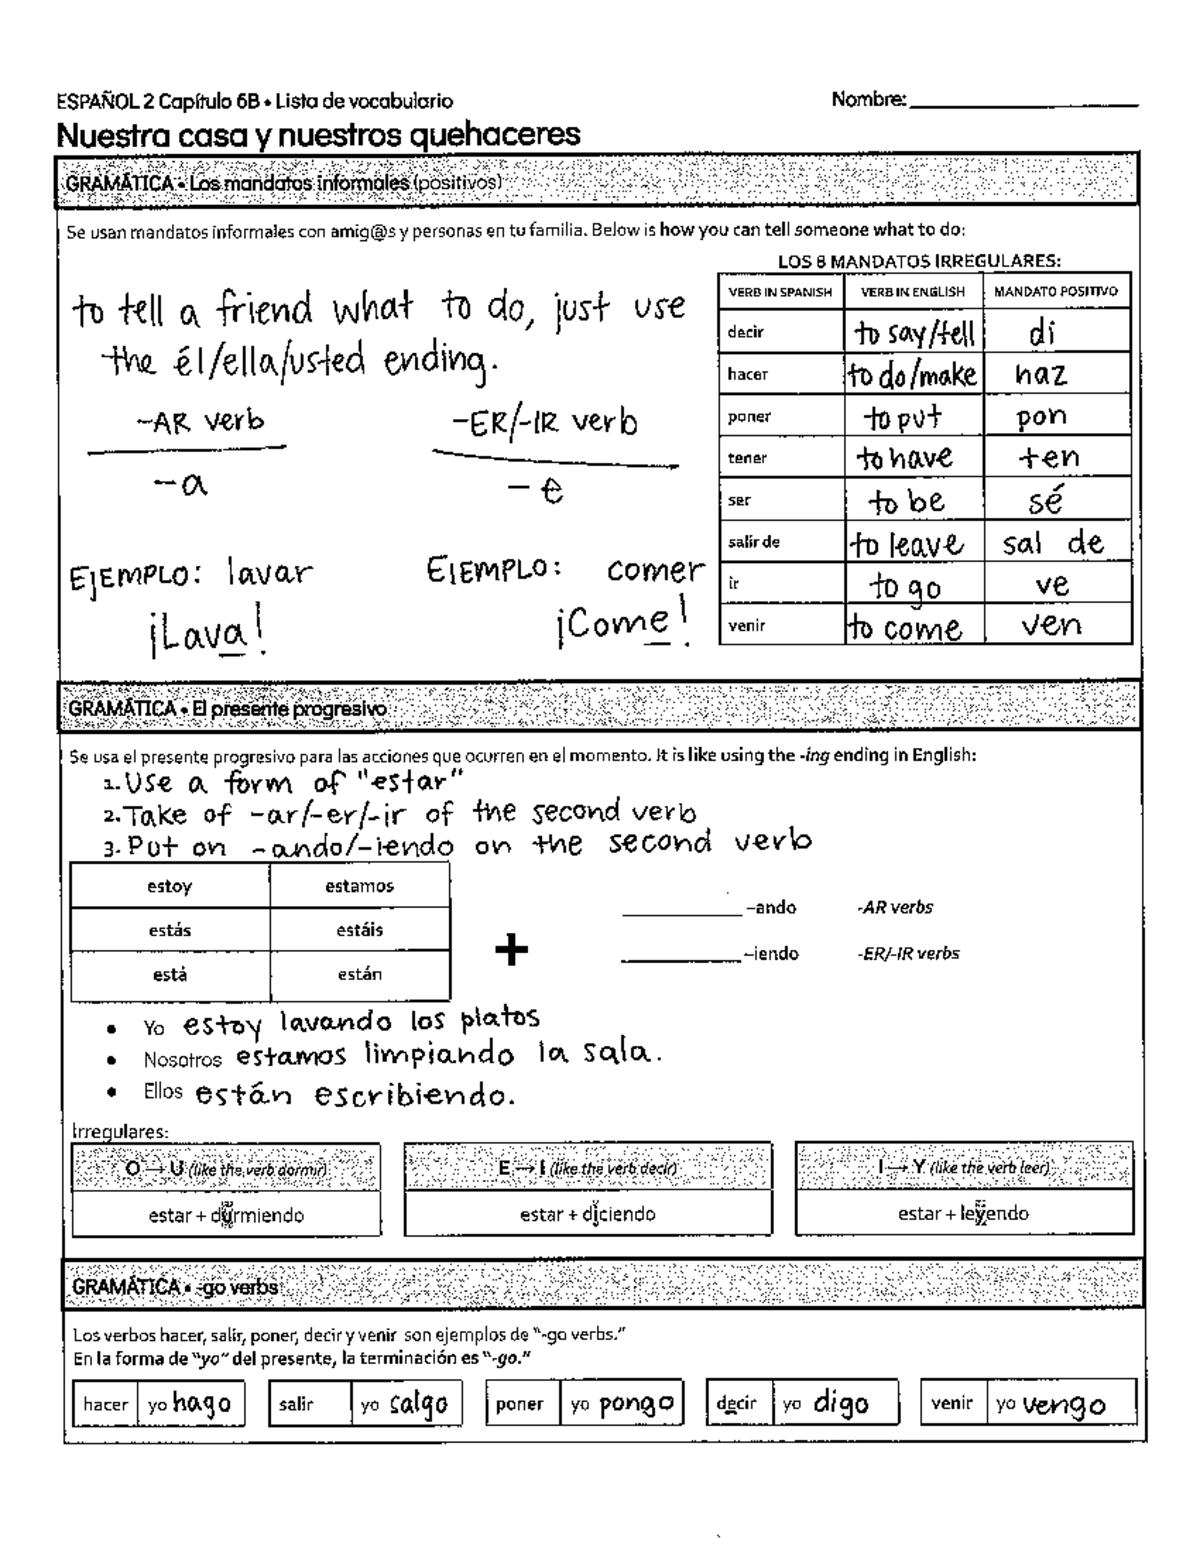 ESPAÑOL 2 Capítulo 6B • Lista de vocabulario
Nombre:
Nuestra casa y nuestros quehaceres
GRAMÁTICA • Los mandatos informales (positivos)
Se usan mandatos informales con amig@s y personas en tu familia. Below is how you can tell someone what to do:
to tell a friend what to do, just use
the él/ella/usted ending.
-AR verb -ER/-IR verb
-a -e
EJEMPLO: lavar EJEMPLO: comer
¡Lava! ¡Come!
LOS 8 MANDATOS IRREGULARES:
VERB IN SPANISH VERB IN ENGLISH MANDATO POSITIVO
decir to say/tell di
hacer to do/make haz
poner to put pon
tener to have ten
ser to be sé
salir de to leave sal de
ir to go ve
venir to come ven
GRAMÁTICA • El presente progresivo
Se usa el presente progresivo para las acciones que ocurren en el momento. It is like using the -ing ending in English:
1. Use a form of "estar"
2. Take of -ar/-er/-ir of the second verb
3. Put on -ando/-iendo on the second verb
estoy estamos
estás estáis
está están
+
–ando -AR verbs
–iendo -ER/-IR verbs
• Yo estoy lavando los platos
• Nosotros estamos limpiando la sala.
• Ellos están escribiendo.
Irregulares:
O → U (like the verb dormir) E → I (like the verb decir) I → Y (like the verb leer)
estar + durmiendo estar + diciendo estar + leyendo
GRAMÁTICA • -go verbs
Los verbos hacer, salir, poner, decir y venir son ejemplos de "-go verbs."
En la forma de "yo" del presente, la terminación es "-go."
hacer yo hago salir yo salgo poner yo pongo decir yo digo venir yo vengo